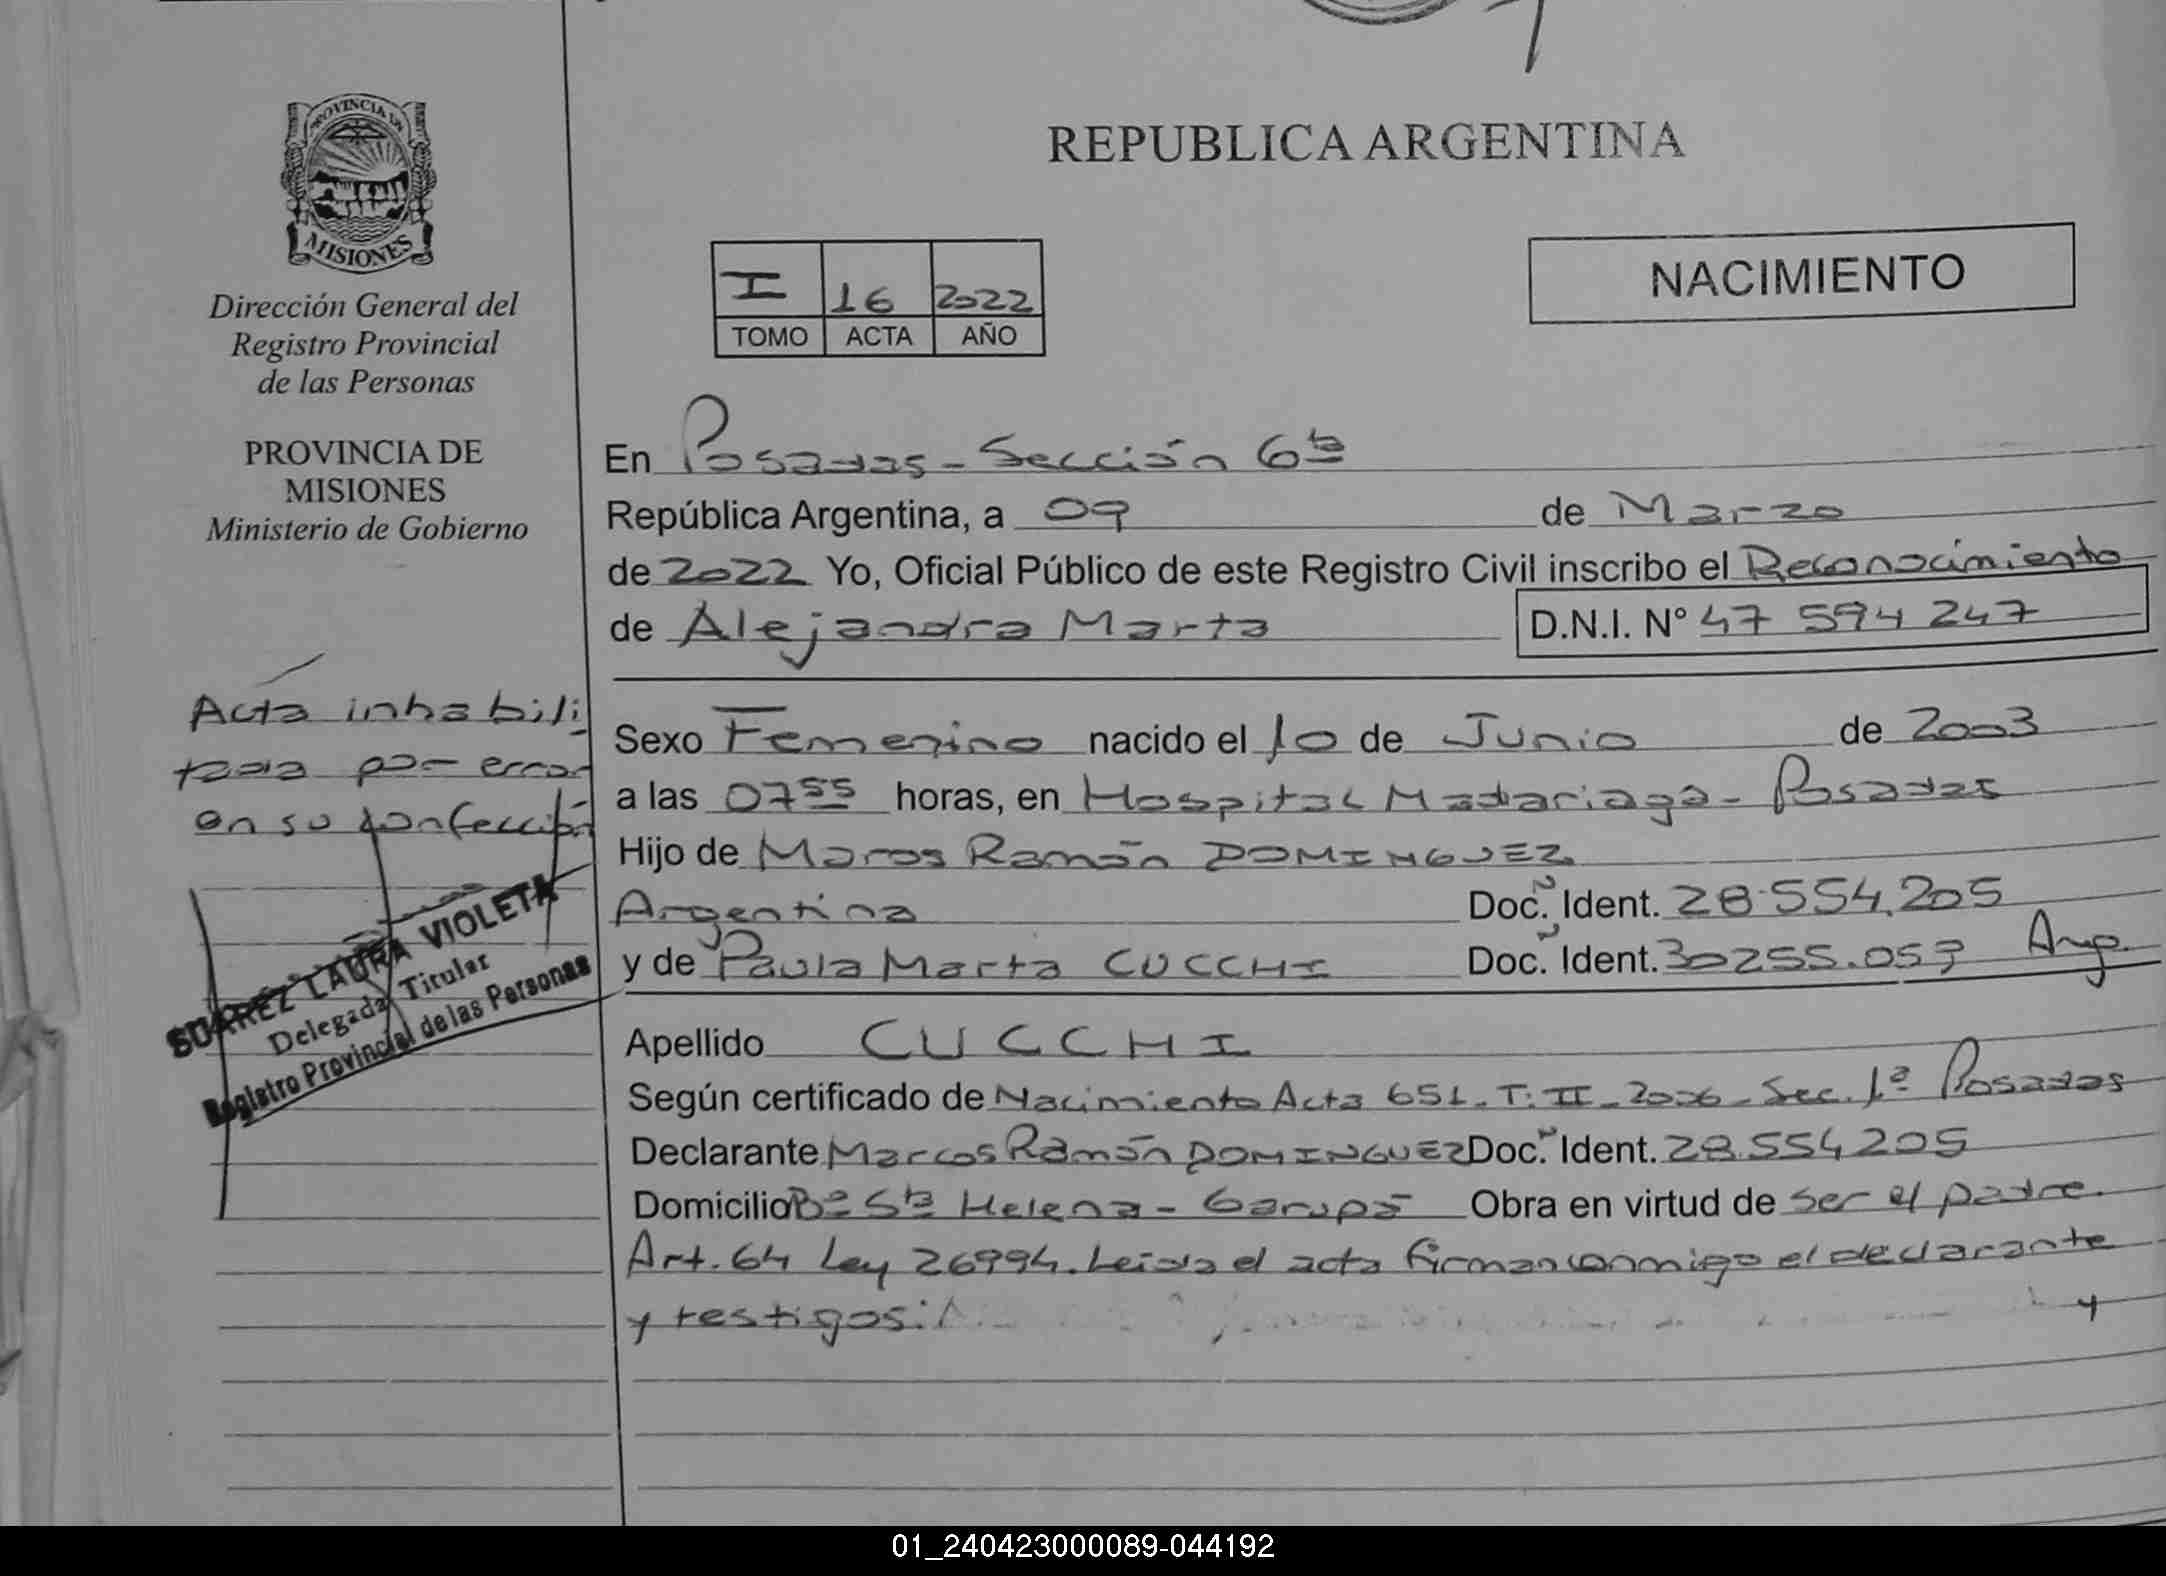 PROVINCIA DE
MISIONES
Dirección General del
Registro Provincial
de las Personas
PROVINCIA DE
MISIONES
Ministerio de Gobierno
Acta inhabili
tada por error
en su confección
SUAREZ LAURA VIOLETA
Delegada Titular
Registro Provincial de las Personas
REPUBLICA ARGENTINA
I 16 2022
TOMO ACTA AÑO
NACIMIENTO
En Posadas - Sección 6ta
República Argentina, a 09 de Marzo
de 2022 Yo, Oficial Público de este Registro Civil inscribo el Reconocimiento
de Alejandra Marta D.N.I. N° 47 594 247
Sexo Femenino nacido el 10 de Junio de 2003
a las 0755 horas, en Hospital Madariaga - Posadas
Hijo de Maros Ramón DOMINGUEZ
Argentina Doc. Ident. 28.554.205
y de Paula Marta CUCCHI Doc. Ident. 30255.057 Arg.
Apellido CUCCHI
Según certificado de Nacimiento Acta 651 - T: II - 2006 - Sec. 1ª Posadas
Declarante Marcos Ramón DOMINGUEZ Doc. Ident. 28.554205
Domicilio Bº Sta Helena - Garupá Obra en virtud de ser el padre.
Art. 64 Ley 26994. Leida el acta firman conmigo el declarante
y testigos: y
01_240423000089-044192